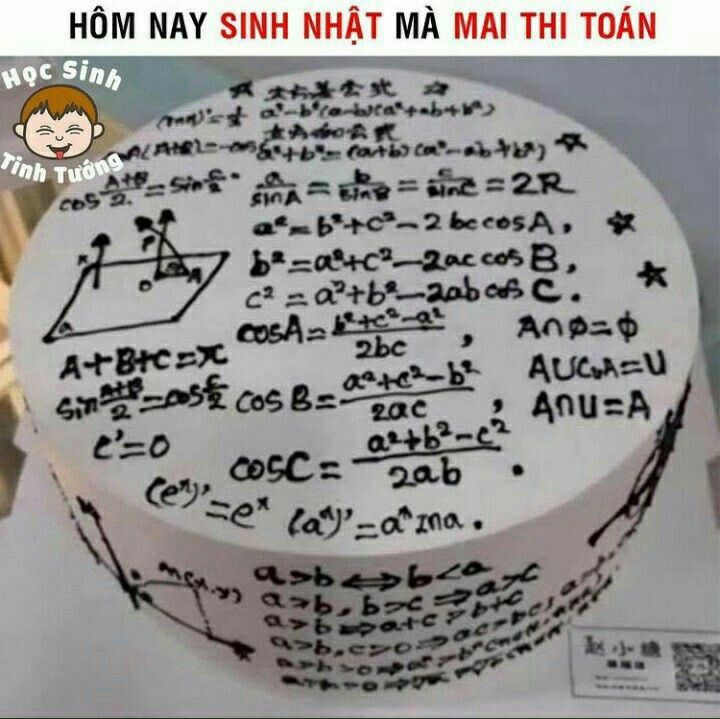 HÔM NAY SINH NHẬT MÀ MAI THI TOÁN
Học Sinh
Tinh Tướng
a³-b³(a-b)(a²+ab+b²)
a³+b³=(a+b)(a²-ab+b²)
cos A+B/2 = sin C/2
a/sinA = b/sinB = c/sinC = 2R
a²=b²+c²-2bccosA,
b²=a²+c²-2accosB,
c²=a²+b²-2abcosC.
cosA= b²+c²-a²/2bc ,
A∩φ=φ
A+B+C=π
A∪CᵤA=U
sin A+B/2 =cos C/2
cosB= a²+c²-b²/2ac ,
A∩U=A
c'=0
cosC= a²+b²-c²/2ab .
(eˣ)'=eˣ
(aˣ)'=aˣlna.
M(x,y)
a>b⟺b<a
a>b,b>c⇒a>c
a>b⇒a+c>b+c
a>b,c>0⇒ac>bc,
赵小糖